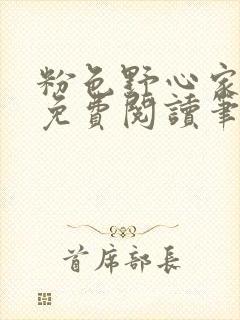 粉色野心家
免费閱讀筆
首席部長